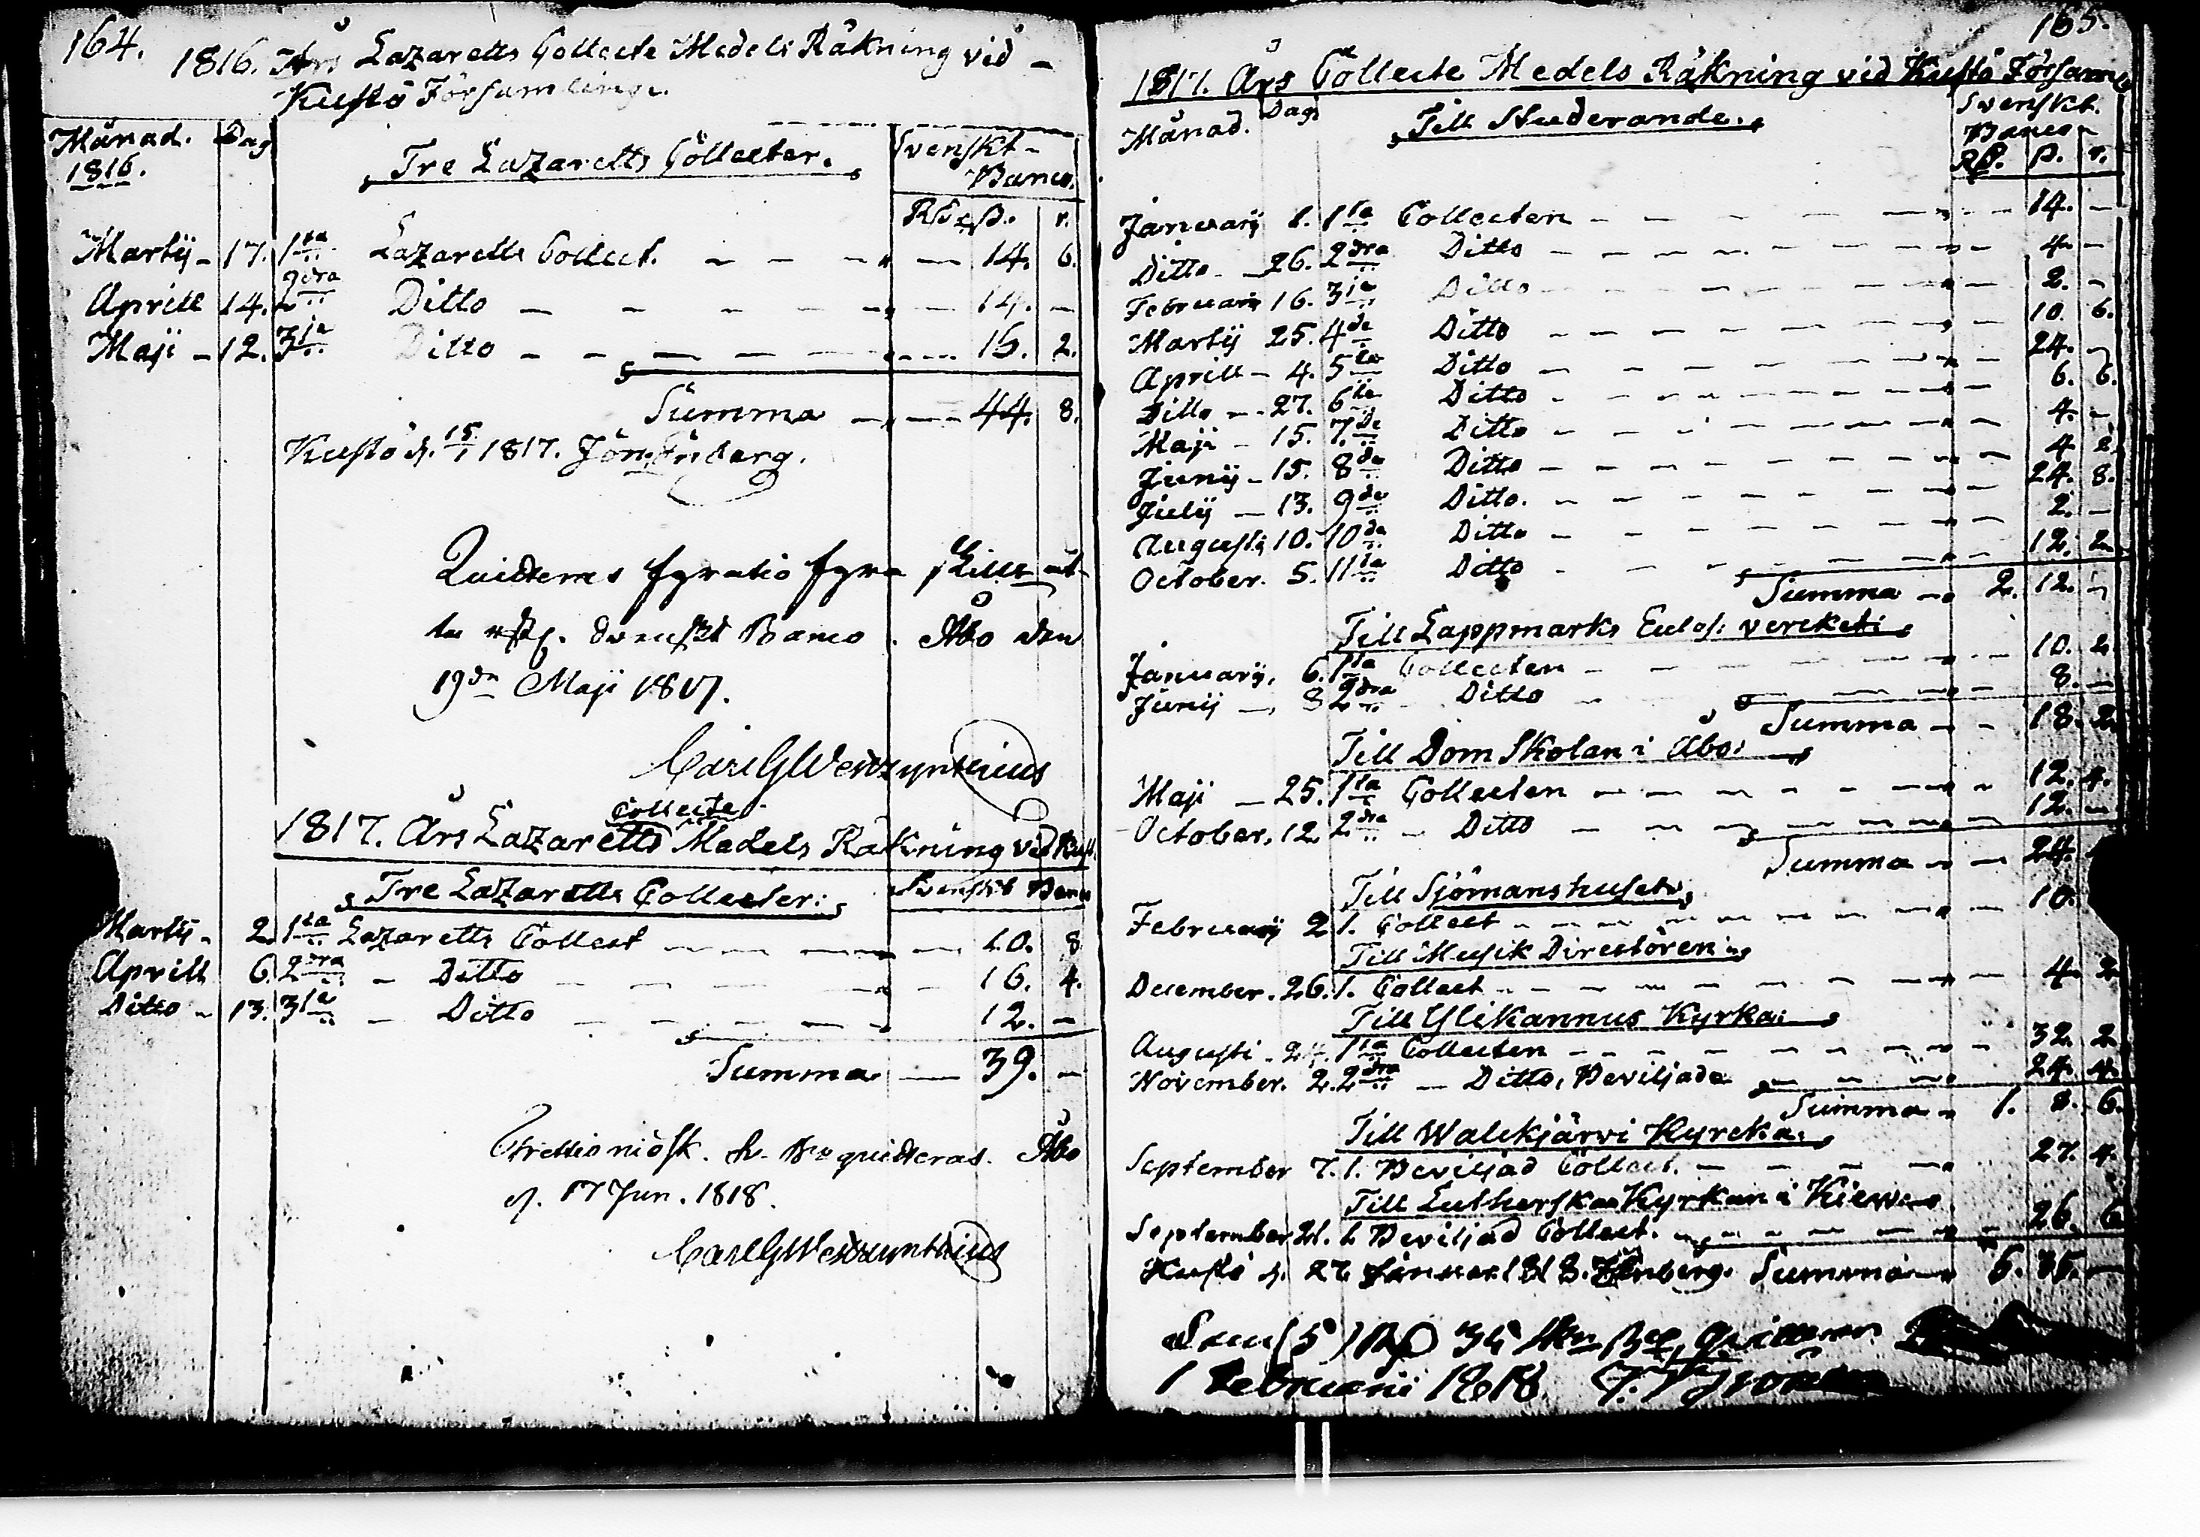 164.
1816. Års Lazaretts Collecte Medels Räkning vid
Kustö Församling.
Månad. Dag Svenskt
1816. Tre Lazaretts Collecter. Banco.
Rd ß. r.
Martij 17. 1sta Lazaretts Collect. 14. 6.
Aprill 14. 2dra Ditto 14. -
Maji 12. 3je Ditto 16. 2.
Summa 44. 8.
Kustö d. 15/1 1817.
Quitteras fyratio fyra skill
Svenskt Banco. Åbo den
19de Maji 1817.
Carl G Westzynthius
Collecte
1817. Års Lazaretts Medels Räkning vid Kust.
Tre Lazaretts Collecter: Svenskt Banco
Martij 2. 1sta Lazaretts Collect 10. 8
Aprill 6. 2dra Ditto 16. 4.
Ditto 13. 3je Ditto 12. -
Summa 39. -
Trettio nio sk. Bco quitteras. Åbo
d. 17 Jun. 1818.
Carl G Westzynthius
165.
1817. Års Collecte Medels Räkning vid Kustö Församl
Månad. Dag Till Studerande. Svenskt.
Banco
Rd. ß. r.
Januarij 1. 1sta Collecten 14. -
Ditto 26. 2dra Ditto 4. -
Februarij 16. 3je Ditto 2. -
Martij 25. 4de Ditto 10. 6.
Aprill 4. 5te Ditto 24. -
Ditto 27. 6te Ditto 6. 6.
Maji 15. 7de Ditto 4. -
Junij 15. 8de Ditto 4. 2.
Julij 13. 9de Ditto. 24. 8.
Augusti 10. 10de Ditto 2. -
October. 5. 11te Ditto 12. 2
Summa 2. 12. -
Till Lappmarks Eccles: vercket:
Januarij. 6. 1sta Collecten 10. 2
Junij 8 2dra Ditto 8. -
Summa 18. 2.
Till Dom Skolan i Åbo:
Maji 25. 1sta Collecten 12. 4.
October. 12 2dra Ditto 12. -
Summa 24.
Till Sjömanshuset
Februarij 2 1. Collect 10.
Till Musik Directören
December. 26. 1. Collect 4. 2.
Till Ylikannus Kyrka:
Augusti 24. 1sta Collecten 32. 2.
November. 2. 2dra Ditto, Beviljade 24. 4.
Summa 1. 8. 6.
Till Walckjärvi Kyrcka:
September 7. 1. Beviljad Collect. 27. 4.
Till Lutherska Kyrkan i Kiew
September 21. 1. Beviljad Collect. 26. 6
Kustö d. 27 Januar. 1818. Summa 5. 35. -
(5) Rd 35 sk Bco quitteras
1 Februarii 1818